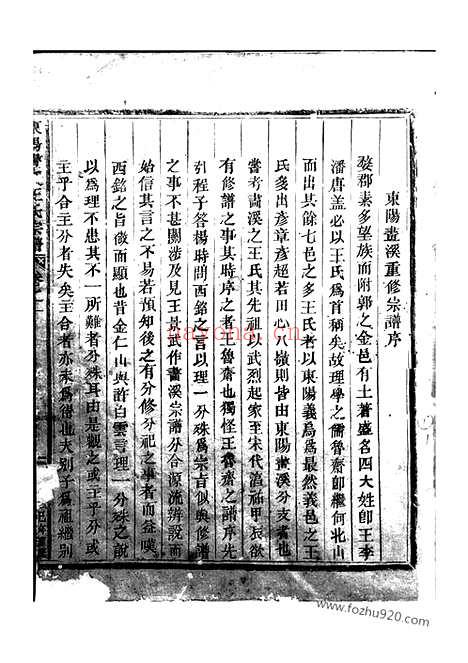 東陽畫溪重修宗譜序
婺郡素多望族而附郭之金邑有土著盛名四大姓卽王李
潘唐盖必以王氏爲首稱矣故理學之儒魯齋卽繼何北山
而出其餘七邑之多王氏者以東陽義烏爲最然義邑之王
氏多出彥章彥超若田心嶺則皆由東陽畫溪分支者也
嘗考畫溪之王氏其先祖以武烈起家至宋代淳祐甲辰欲
有修譜之事其時序之者王魯齋也獨怪王魯齋之譜序先
引程子答楊時問西銘之言以理一分殊爲宗旨似與修譜
之事不甚關涉及見王武作畫溪宗譜分合源流辨說而
始信其言之不易若預知後之有分修分祀之事者而益嘆
西銘之旨微而顯也昔金仁山與許白雲言理一分殊之說
以爲理不患其不一所難者分殊耳由是觀之或主乎分或
主乎合主分者失矣主合者亦未爲得也夫別子爲祖繼別
東陽畫溪王氏宗譜 卷一
www.fozhu920.com